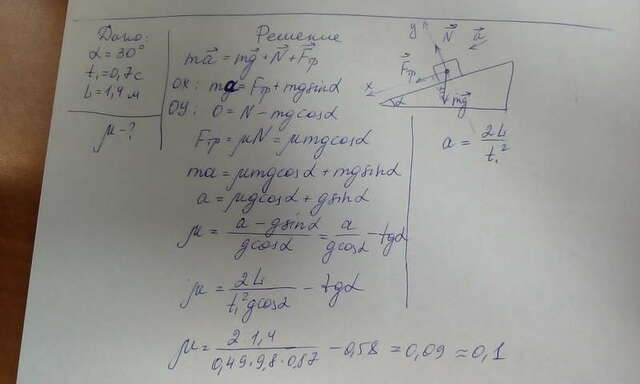 Дано:
α = 30°
t₁ = 0,7 с
L = 1,4 м
μ - ?
Решение
ma⃗ = mg⃗ + N⃗ + F⃗тр
OX: ma = Fтр + mgsinα
OY: 0 = N - mgcosα
Fтр = μN = μmgcosα
ma = μmgcosα + mgsinα
a = μgcosα + gsinα
μ = (a - gsinα)/(gcosα) = a/(gcosα) - tgα
μ = 2L/(t₁²gcosα) - tgα
μ = (2·1,4)/(0,49·9,8·0,87) - 0,58 = 0,09 ≈ 0,1
y N⃗ a⃗
F⃗тр
x α mg⃗
a = 2L/t₁²